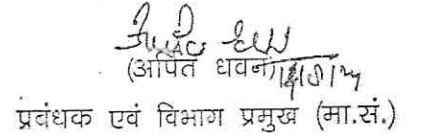 (अर्पित धवन)
प्रबंधक एवं विभाग प्रमुख (मा.सं.)